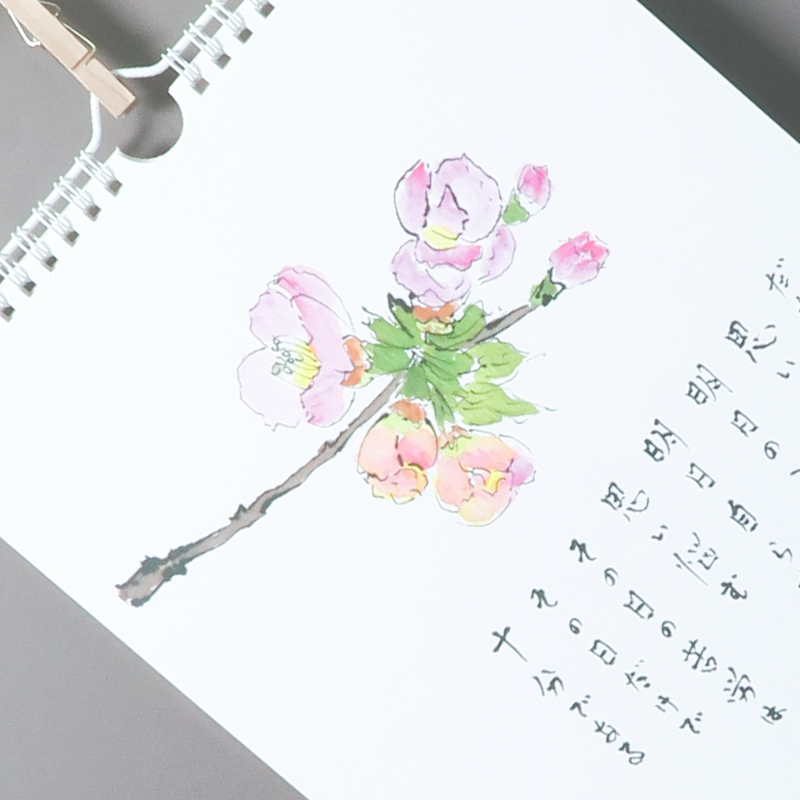 だ
思い
明日の
明日自ら
思い悩む
その日の苦労は
その日だけで
十分である